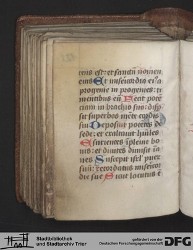 eius est: et sanctū nomen
eius Et misericordia eius a
progenie in progenies: ti
mentibus eū Fecit poten
ciam in brachio suo: disp
sit superbos mēte cordis
sui Deposuit potētes de
sede: et exaltauit hūiles
Esurientes īpleuit bo
nis: et diuites dimisit īa
nes Suscepit isrl puer
suū: recordatus miseri
die sue Sicut locutus ē
Stadtbibliothek
und Stadtarchiv Trier
gefördert von der
Deutschen Forschungsgemeinschaft
DFG